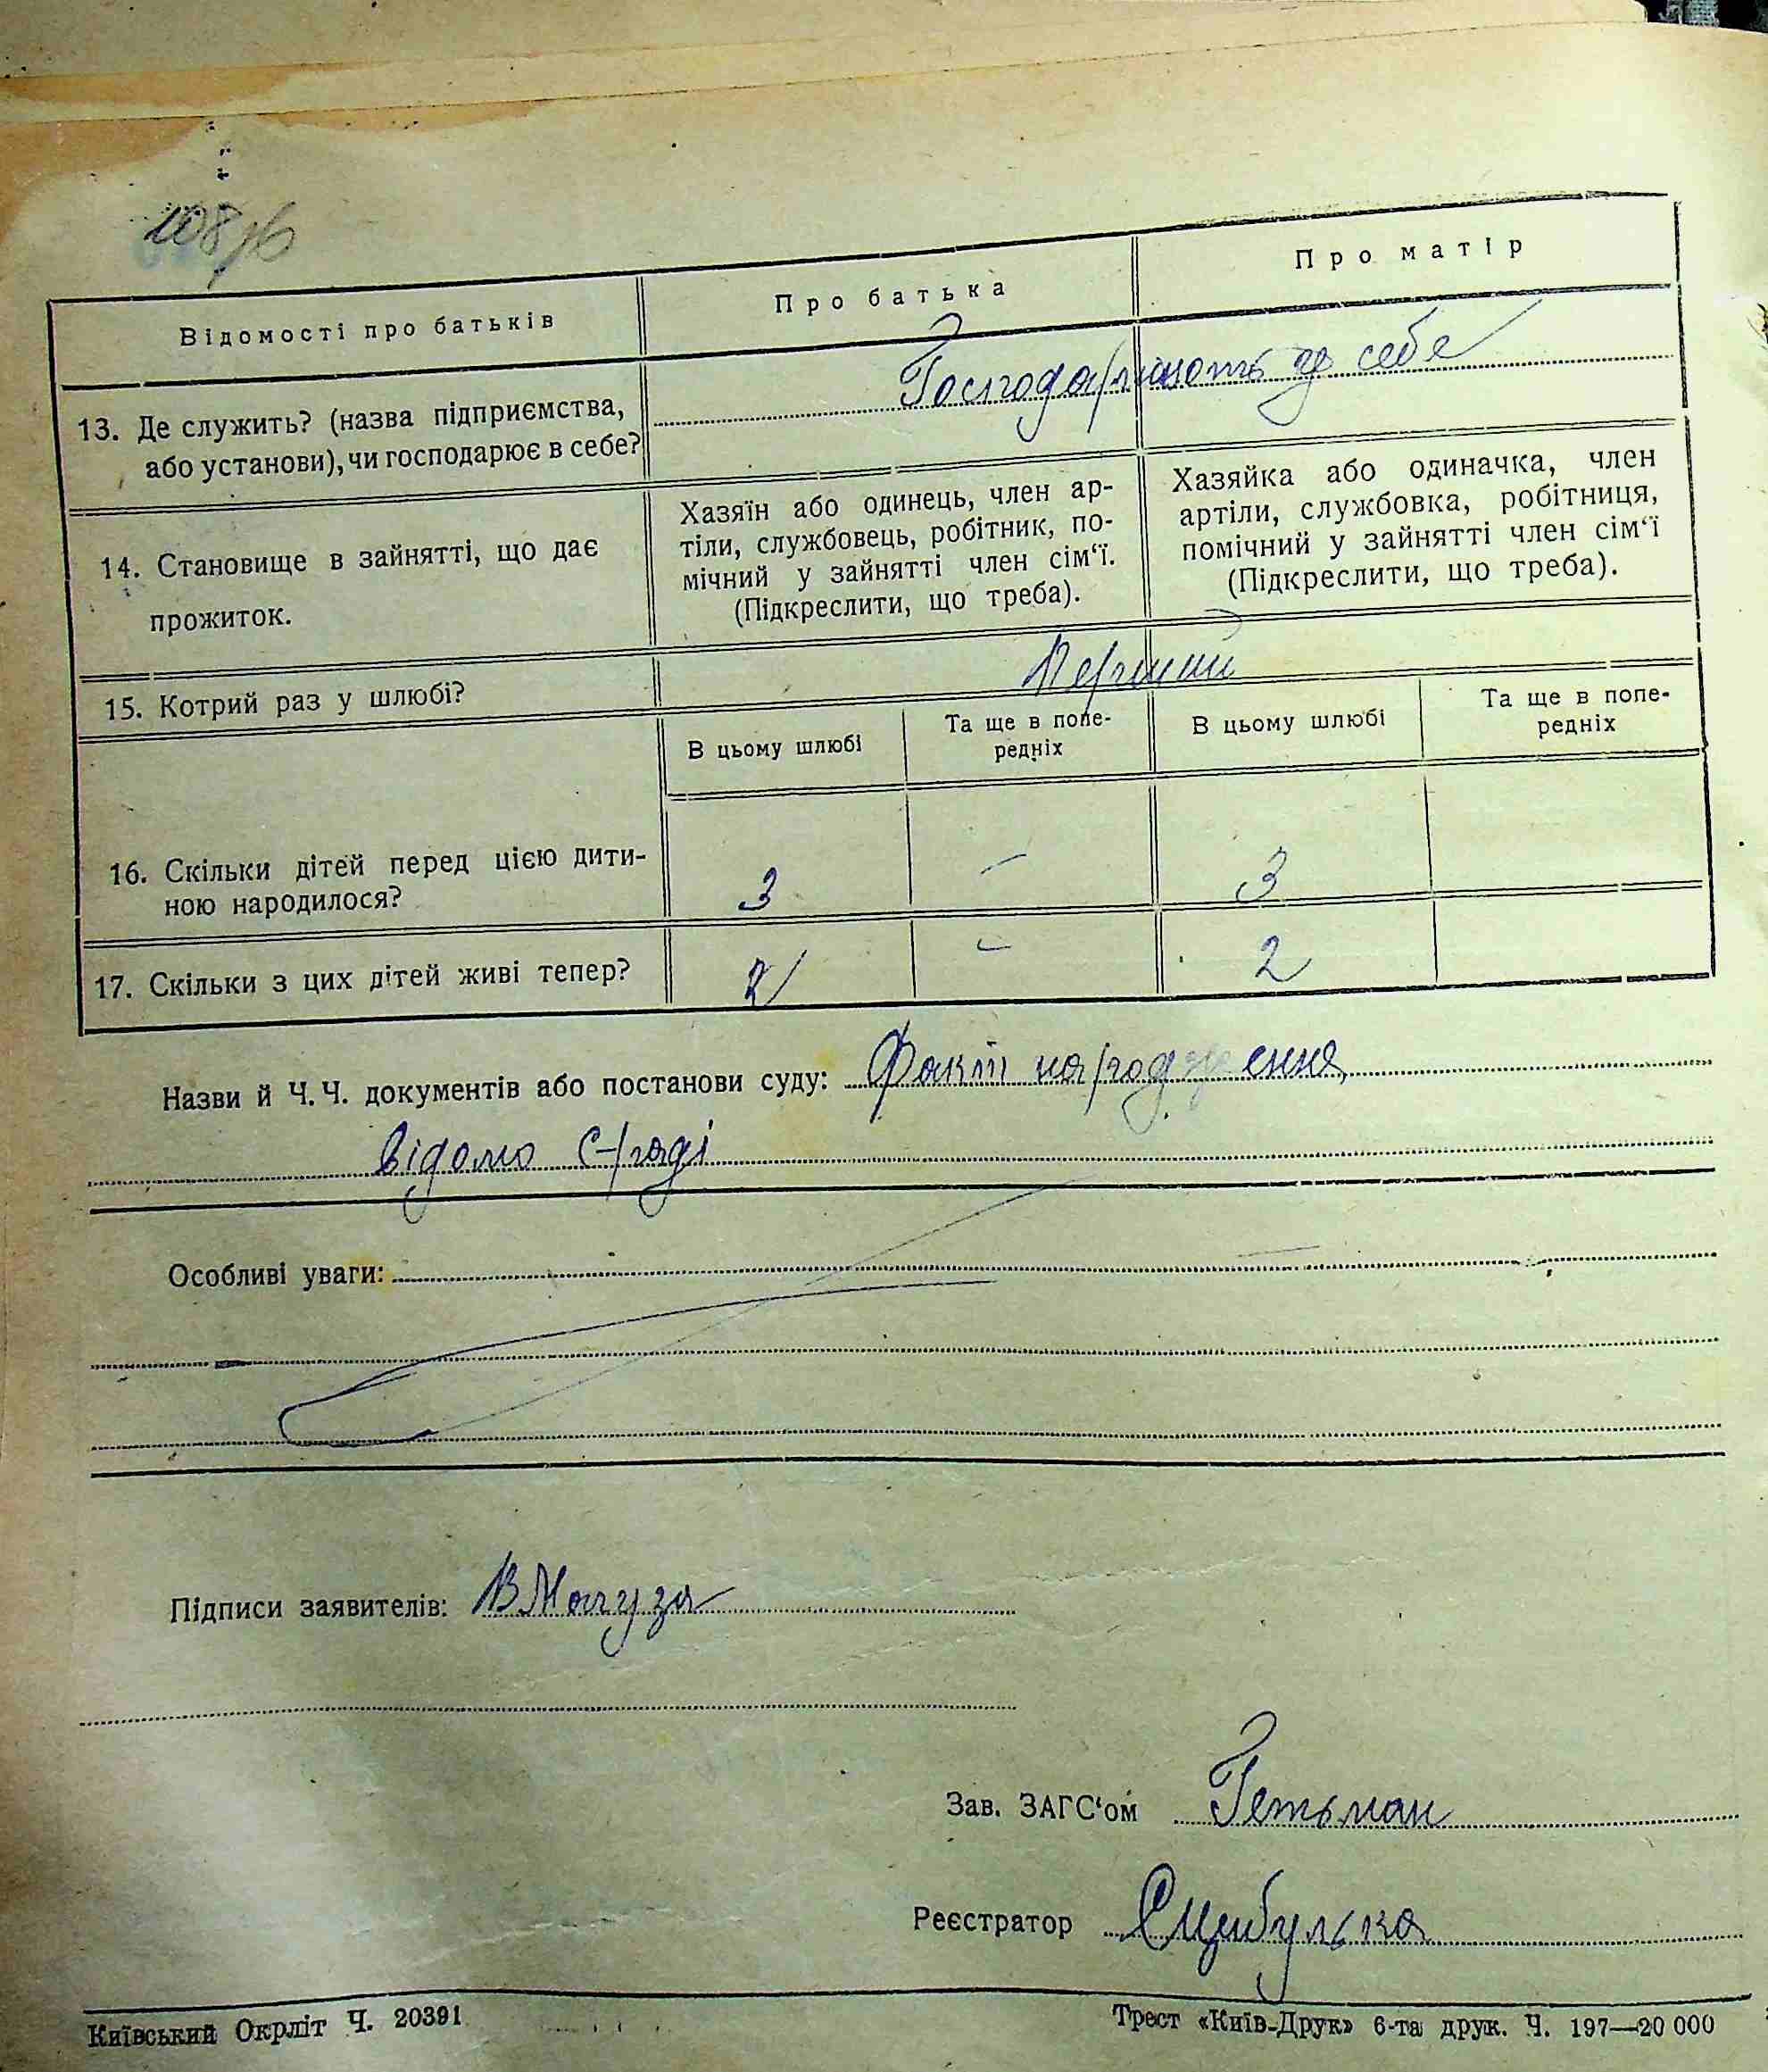 108
Відомості про батьків
Про батька
Про матір
13. Де служить? (назва підприємства,
або установи), чи господарює в себе?
Господарюють до себе
14. Становище в зайнятті, що дає
прожиток.
Хазяїн або одинець, член ар-
тіли, службовець, робітник, по-
мічний у зайнятті член сім‘ї.
(Підкреслити, що треба).
Хазяйка або одиначка, член
артіли, службовка, робітниця,
помічний у зайнятті член сім‘ї
(Підкреслити, що треба).
15. Котрий раз у шлюбі?
Перший
В цьому шлюбі
Та ще в попе-
редніх
В цьому шлюбі
Та ще в попе-
редніх
16. Скільки дітей перед цією дити-
ною народилося?
3 – 3
17. Скільки з цих дітей живі тепер?
2 – 2
Назви й Ч. Ч. документів або постанови суду: Факт народження
відомо С-раді
Особливі уваги:
Підписи заявителів:
Зав. ЗАГС‘ом Гетьман
Реєстратор Єцибулька
Київський Окрліт Ч. 20391
Трест «Київ-Друк» 6-та друк. Ч. 197—20 000